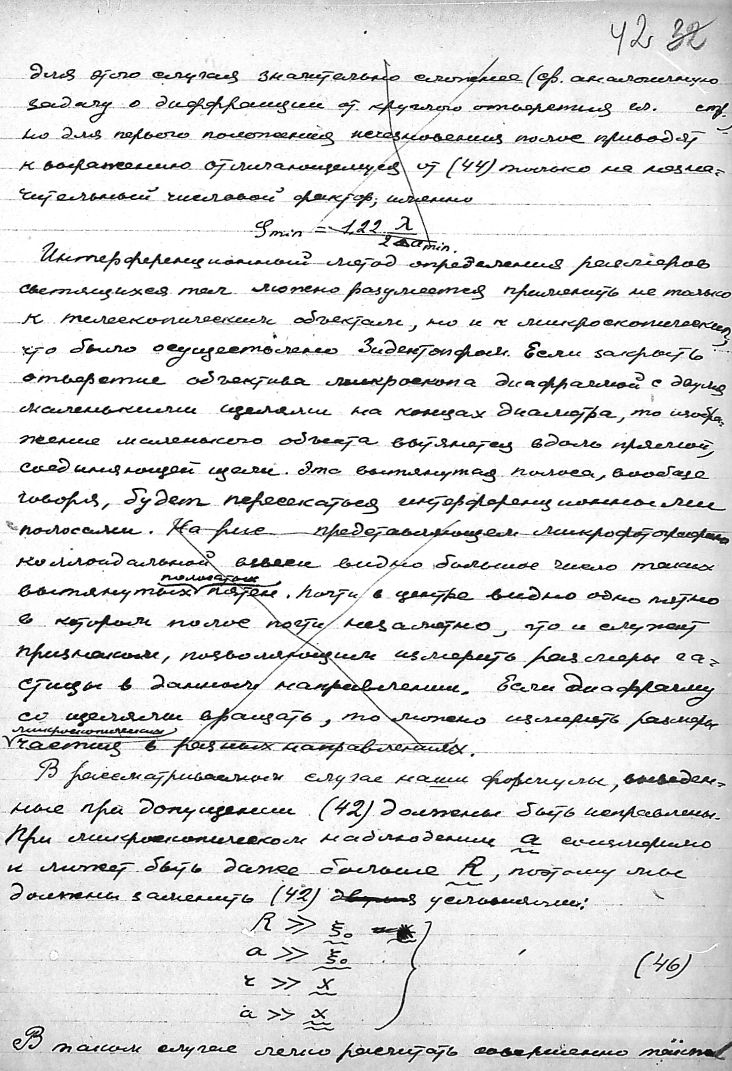 42 32
для этого случая значительно сложнее (ср. аналогичную
задачу о диффракции от круглого отверстия гл. стр.
но для первого положения исчезновения полос приводят
к выражению отличающемуся от (44) только на незна-
чительный числовой фактор, именно
φmin = 1,22 λ / 2amin.
Интерференционный метод определения размеров
светящихся тел можно разумеется применить не только
к телескопическим объектам, но и к микроскопическим,
что было осуществлено Зидентопфом. Если закрыть
отверстие объектива микроскопа диафрагмой с двумя
маленькими щелями на концах диаметра, то изобра-
жение маленького объекта вытянется вдоль прямой,
соединяющей щели. Эта вытянутая полоса, вообще
говоря, будет пересекаться интерференционными
полосами. На рис представляющем микрофотографию
коллоидальной взвеси видно большое число таких
полосатых
вытянутых пятен. Почти в центре видно одно пятно
в котором полос почти незаметно, что и служит
признаком, позволяющим измерить размеры ча-
стицы в данном направлении. Если диафрагму
со щелями вращать, то можно измерить размеры
микроскопических
частиц в разных направлениях.
В рассматриваемом случае наши формулы, выведен-
ные при допущении (42) должны быть исправлены.
При микроскопическом наблюдении a соизмеримо
и может быть даже больше R, поэтому мы
должны заменить (42) условиями:
R ≫ ξ₀
a ≫ ξ₀
r ≫ x
a ≫ x
(46)
В таком случае легко расчитать совершенно